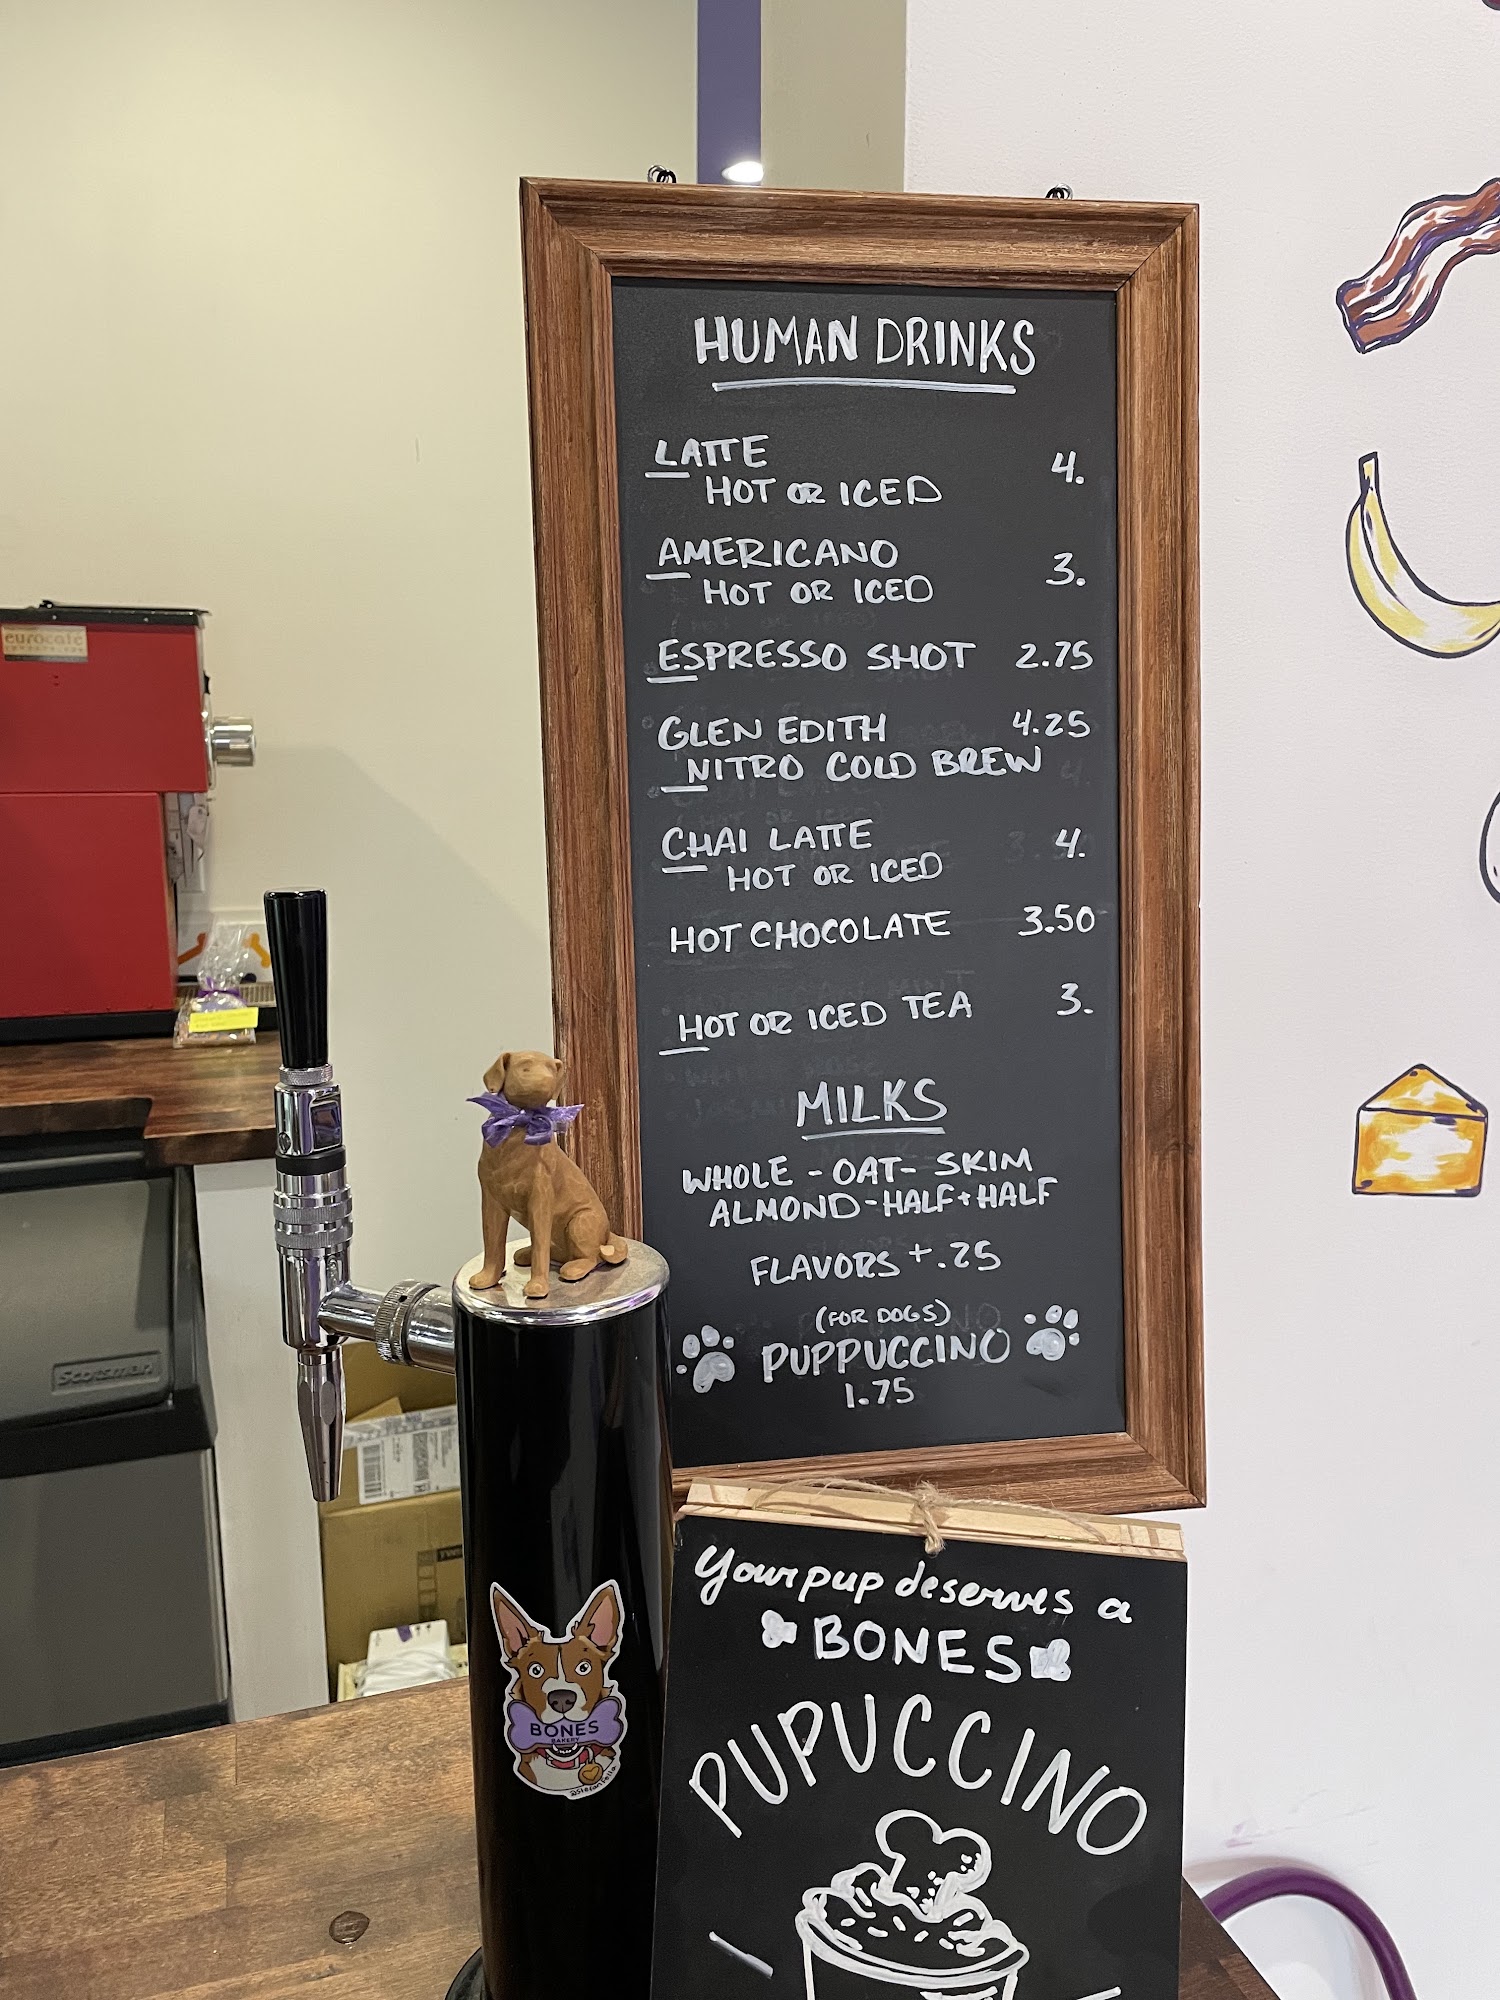 HUMAN DRINKS
LATTE 4.
HOT OR ICED
AMERICANO 3.
HOT OR ICED
ESPRESSO SHOT 2.75
GLEN EDITH 4.25
NITRO COLD BREW
CHAI LATTE 4.
HOT OR ICED
HOT CHOCOLATE 3.50
HOT OR ICED TEA 3.
MILKS
WHOLE - OAT - SKIM
ALMOND - HALF + HALF
FLAVORS + .25
(FOR DOGS)
PUPPUCCINO
1.75
Your pup deserves a
BONES
PUPUCCINO
BONES
BAKERY
eurocafé
Scotsman